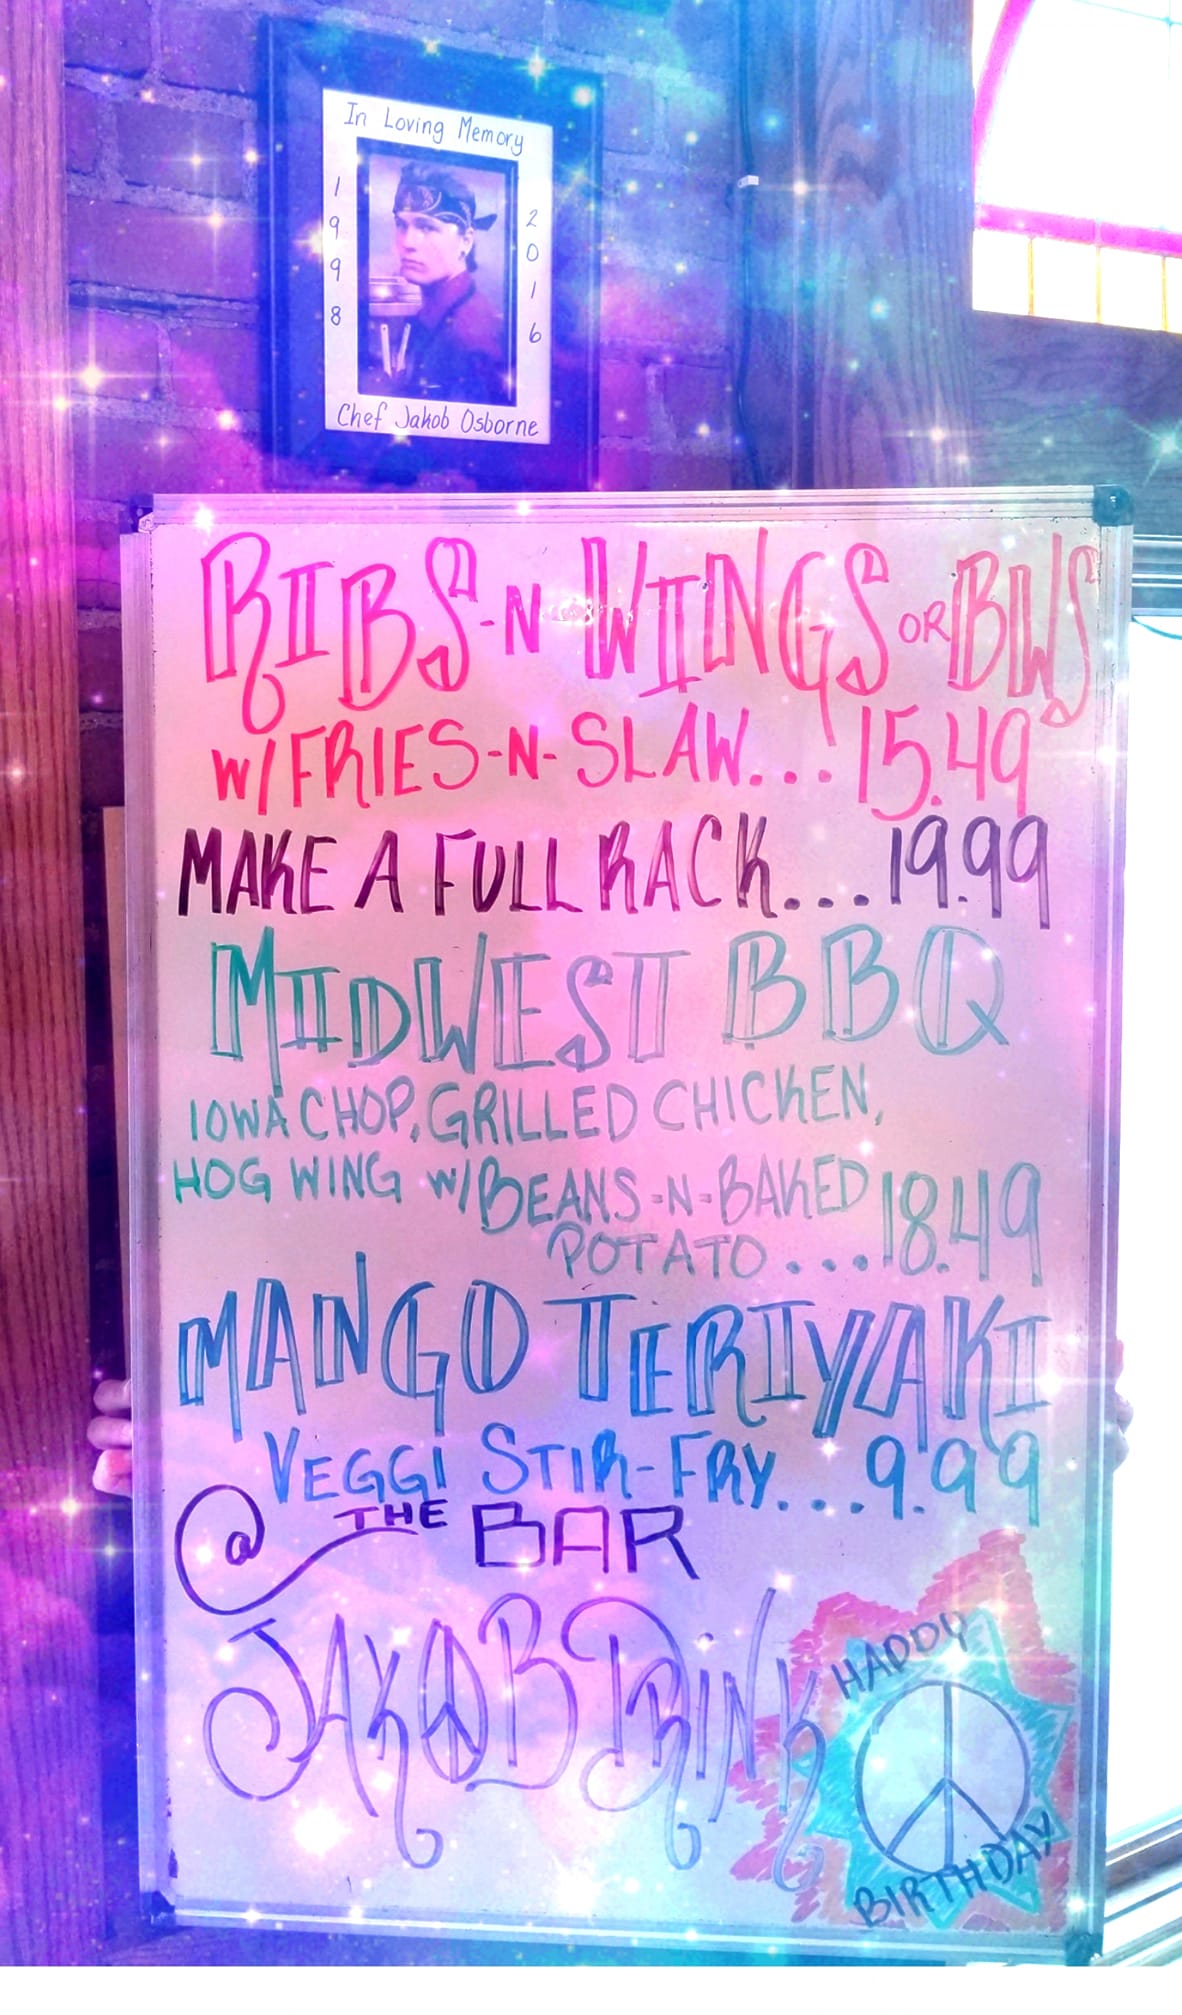 In Loving Memory
1998
2016
Chef Jakob Osborne
RIBS-N-WINGS OR BWS
W/FRIES-N-SLAW...15.49
MAKE A FULL RACK...19.99
MIDWEST BBQ
IOWA CHOP, GRILLED CHICKEN,
HOG WING W/BEANS-N-BAKED
POTATO....18.49
MANGO TERIYAKI
VEGGI STIR-FRY....9.99
@ THE BAR
JAKOB DRINK
HAPPY
BIRTHDAY